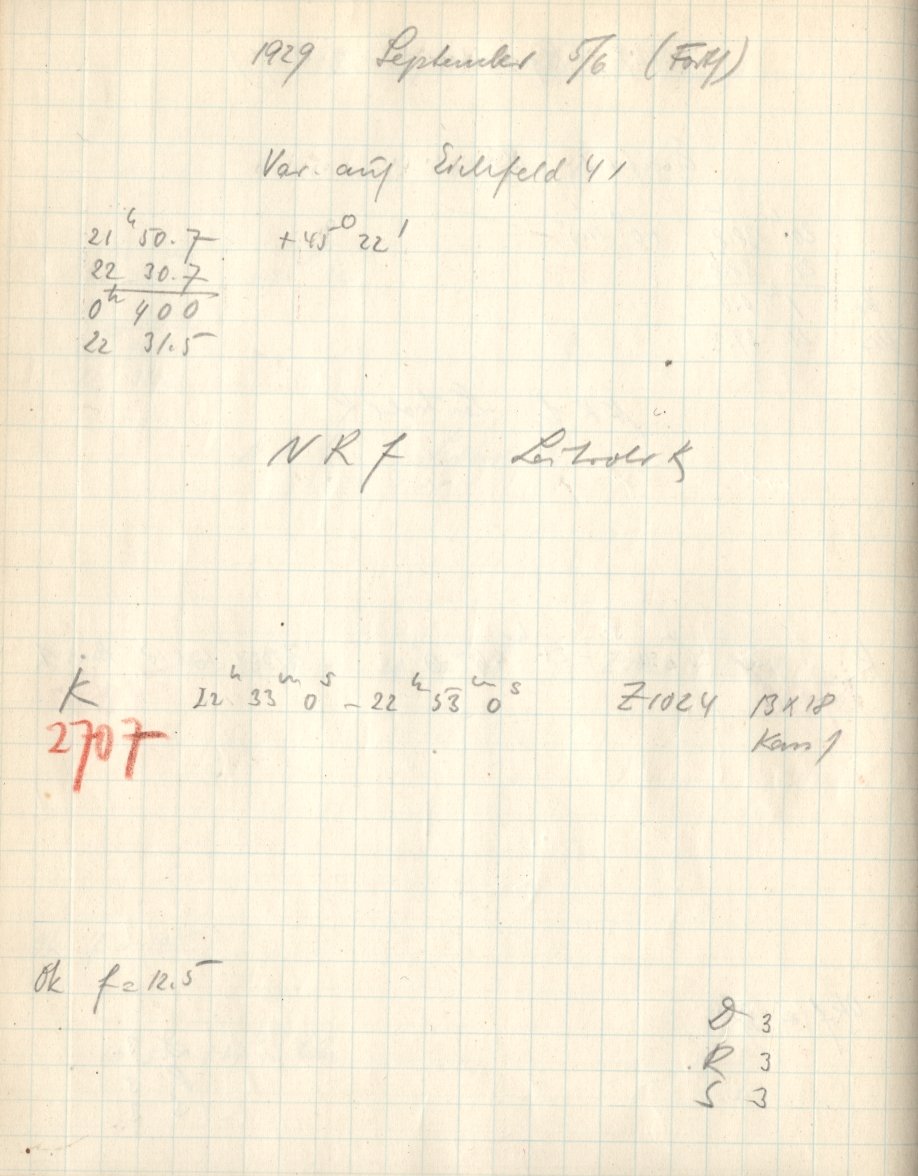 1929 September 5/6 (Forts)
Var. auf Eichfeld 41
21ʰ 50.7 +45° 22'
22 30.7
0ʰ 40 0
22 31.5
N R f
K 22ʰ 33ᵐ 0ˢ – 22ʰ 53ᵐ 0ˢ Z1024 13 x 18
2707 Kass 1
Ok f = 12.5
D 3
R 3
S 3